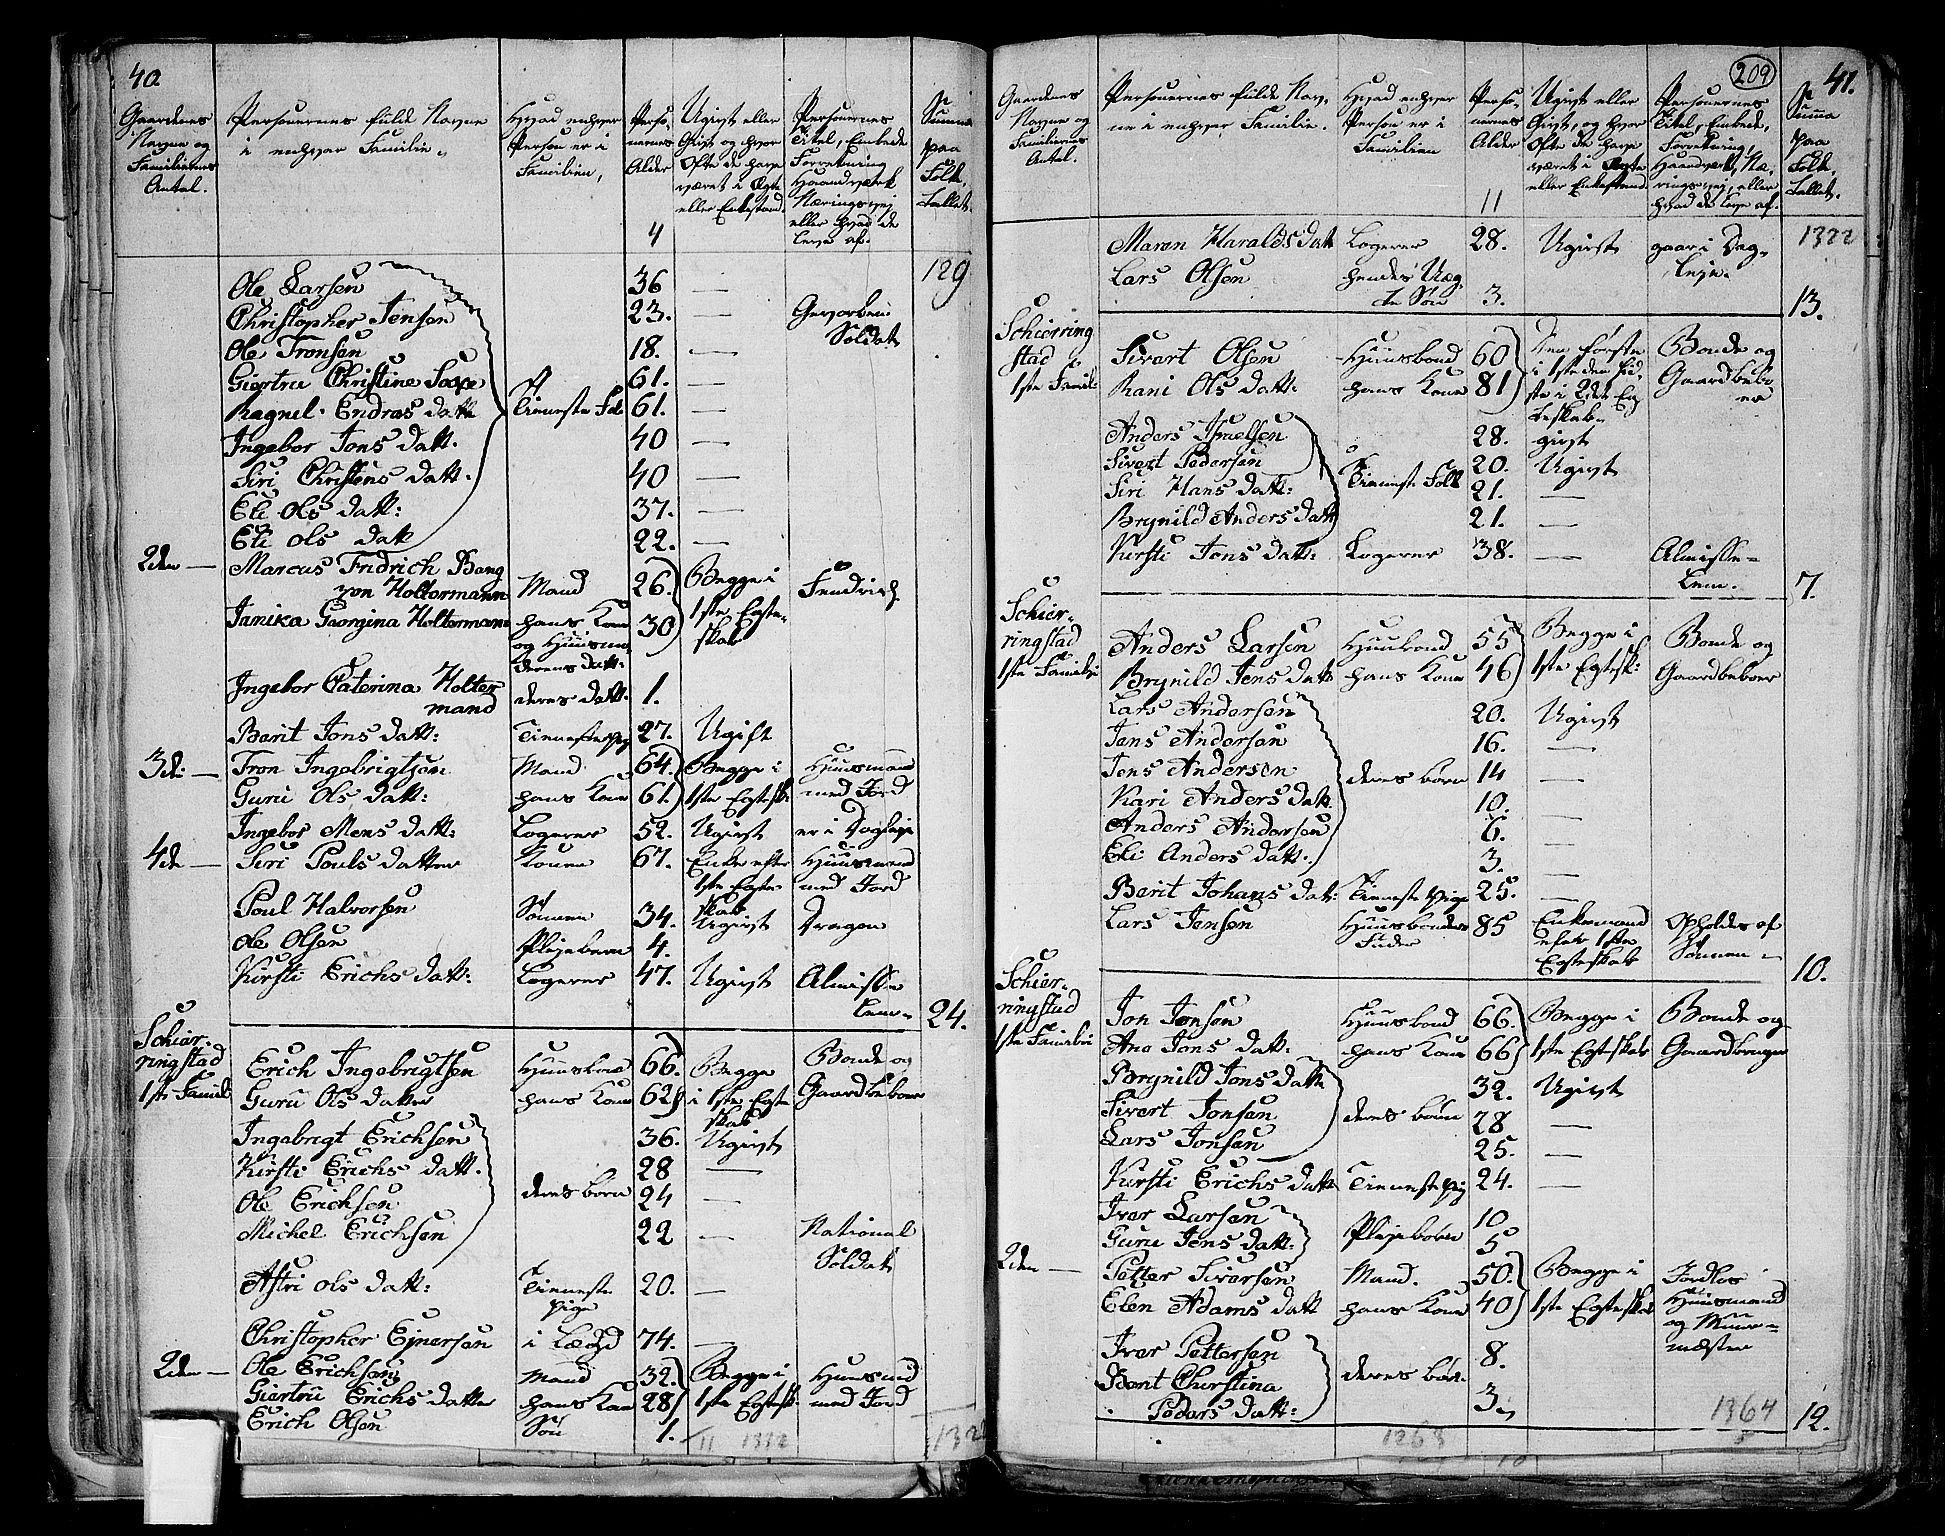 40.
Gaardenes Navne og Familiernes Antal.
Personernes fulde Navne i enhver Familie.
Hvad enhver Person er i Familien,
Personernes Alder
Ugivt eller Givt og hvor Ofte de have været i Ægte eller Enkestand
Personernes Titel, Embede Forretning Haandværk Næringsvej eller hvad de leve af.
Summa paa Folketallet.
4
129
Ole Larsen 36 —
Christopher Jensen 23. — Gevorben Soldat
Ole Tronsen 18. —
Giertru Christine 61. —
Ragnil Endras datt Tienneste Folk 61. —
Ingebor Jons datt. 40 —
Siri Christens datt. 40
Eli Ols datt: 37. —
Eli Ols datt 22. —
2den — Marcus Fridrich Bang
von Holtermann Mand 26. Begge i Fendrich
Janika Georgina Holtermann hans Kone 30 1ste Egteskab
og
derens datt:
Ingebor Caterina Holter
mand deres datt. 1.
Barit Jons datt: Tienneste pig 27. Ugift
3de — Tron Ingebrigtsen Mand 64. Begge i Huusmand
Guru Ols datt: hans Kone 61. 1ste Egtesk: med Jord
Ingebor Mons datt: Logerer 52. Ugivt er i
4de — Siri Pouls datter Konen 67. Enke efter Huusmand
1ste Egteskab med Jord
Poul Halvorsen Sønnen 34. Ugivt Dragon
Ole Olsen Plejebarn 4.
Kirsti Erichs datt: Logerer 47. Ugivt Almisse
Lem. 24.
Schierringstad
1ste Famili
Erich Ingebrigtsen Huusbond 66. Begge Bonde og
Guru Ols datter hans Kone 62 i 1ste Egteskab Gaardbeboer
Ingebrigt Erichsen 36. Ugivt
Kirsti Erichs datt. 28 —
Ole Erichsen deres børn 24 —
Michel Erichsen 22 — National
Soldat
Astri Ols datt: Tienneste pige 20. —
Christopher Ejnersen i Lægd 74. —
2den — Ole Erichsen Mand 32. Begge i Huusmd
Giertru Erichs datter hans Kone 28 1ste Egtesk. med Jord
Erich Olsen Søn 1.
11 1322
209
41.
Gaardenes Navne og Familiernes Antal.
Personernes fulde Navne i enhver Familie.
Hvad enhver Person er i Familien
Personernes Alder
Ugivt eller Givt, og hvor Ofte de have været i Ægte eller Enkestand
Personernes Titel, Embede, Forretning, Haandværk, Næringsvej, eller hvad de leve af.
Summa paa Folketallet.
11
1322
Maren Haralds datt Logerer 28. Ugivt gaar i Dag
Lars Olsen hendes Uægte Søn 3. leje.
13.
Schierringstad
1ste Famil:
Sivart Olsen Huusbond 60 Den første Bonde og
Rani Ols datt: hans Kone 81 i 1ste den sidste i 2det Egteskab Gaardbeboer
Anders 28. givt
Sivert Pedersen 20. Ugivt
Siri Hans datt: Tienneste Folk 21. —
Brynild Anders datt 21. —
Kirsti Jons datt: Logerer 38. — Almisse
Lem. 7.
Schierringstad
1ste Familie
Anders Larsen Huusbond 55 Begge i Bonde og
Brynild Jens datt hans Kone 46 1ste Egtesk: Gaardbeboer
Lars Andersen 20. Ugivt
Jens Andersen 16. —
Jens Andersen deres børn 14 —
Kari Anders datt 10. —
Anders Andersen 6. —
Eli Anders datt. 3. —
Barit Johans datt: Tienneste pige 25. —
Lars Jensen Huusbondens Fader 85 Enkemand efter 1ste Egteskab Opholdes af Sønnen
10.
Schierringstad
1ste Familie
Jon Jonsen Huusbond 66. Begge i Bonde og
Ana Jons datt: hans Kone 66 1ste Egteskab Gaardbruger
Brynild Jons datt 32. Ugivt
Sivert Jonsen deres børn 28 —
Lars Jonsen 25. —
Kirsti Erichs datt Tienneste pig 24. —
Iver Larsen 10
Guru Jens datt: Plejebørn 5
2den — Petter Siversen Mand. 50. Begge i Jordløs
Elen Adams datt hans Kone 40 1ste Egteskab Huusmand
og Muurmæster
Iver Pettersen 8.
Barit Christina deres børn.
Peders datt: 3.
1364
12.
1268